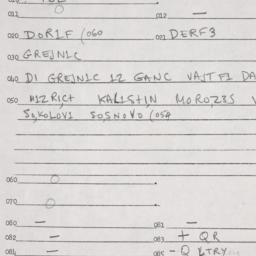 011 012 —
020 DOR1F (060 021 DERF3
030 GREJN1C
040 DI GREJN1C 12 GANC VAJTF1 DA
050 KAL1ST1N MOROZ3S
SOKOLOV1 SOSNOVO (050
060
070
080 — 081 —
082 — 083 + QR
084 — 085